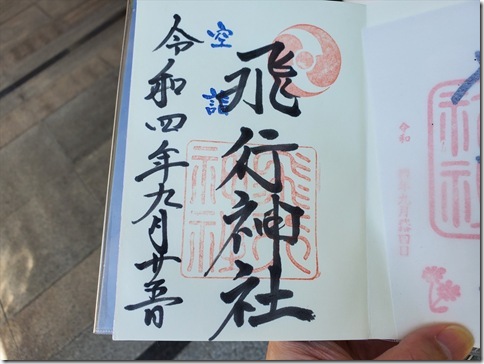 飛行神社
空詣
令和四年九月廿五日
飛行
神社
令和